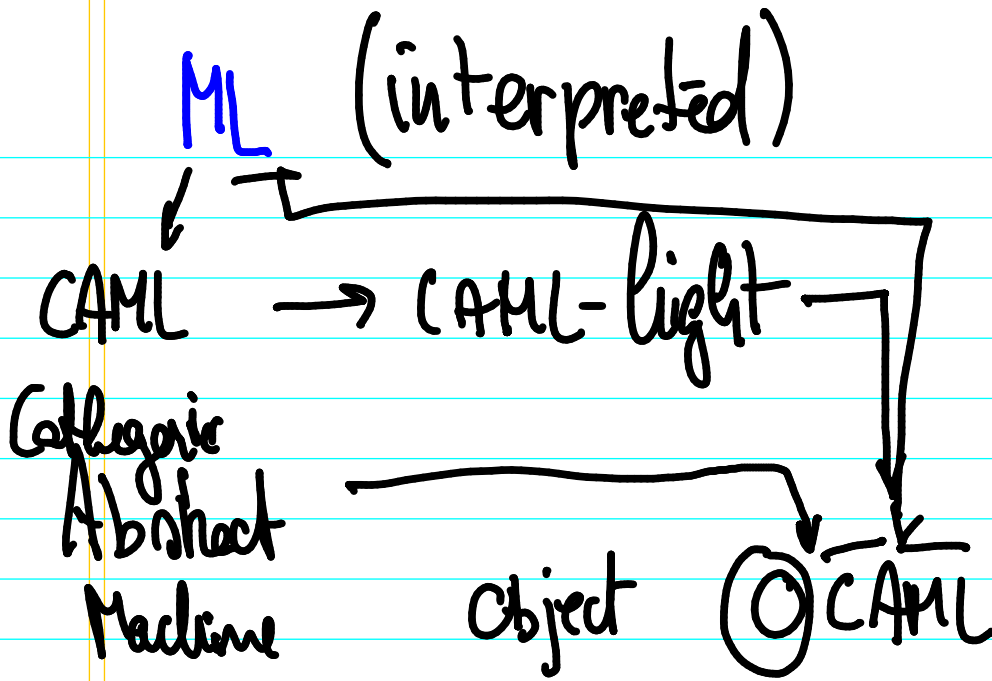 ML (interpreted)
CAML → CAML-light
Cathegoric
Abstract
Machine Object OCAML